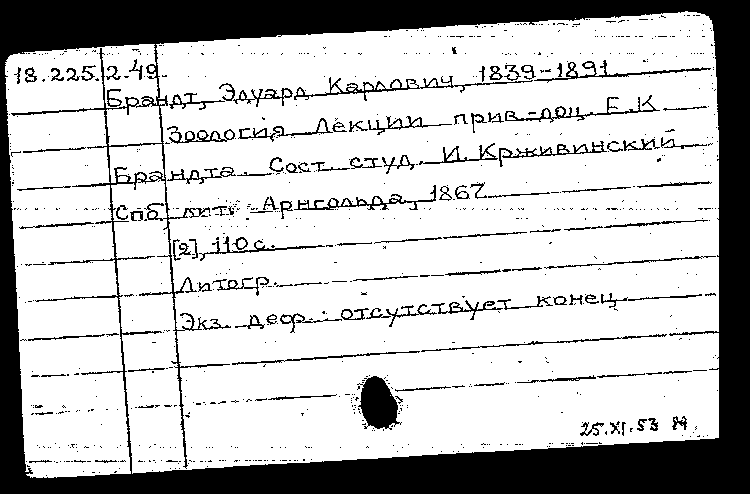 18.225.2.49.
Брандт, Эдуард Карлович, 1839-1891.
Зоология. Лекции прив.-доц. Е.К.
Брандта. Сост. студ. И. Крживинский.
Спб, лит. Арнгольда, 1867.
[2], 110 с.
Литогр.
Экз. деф.: отсутствует конец.
25.XI.53